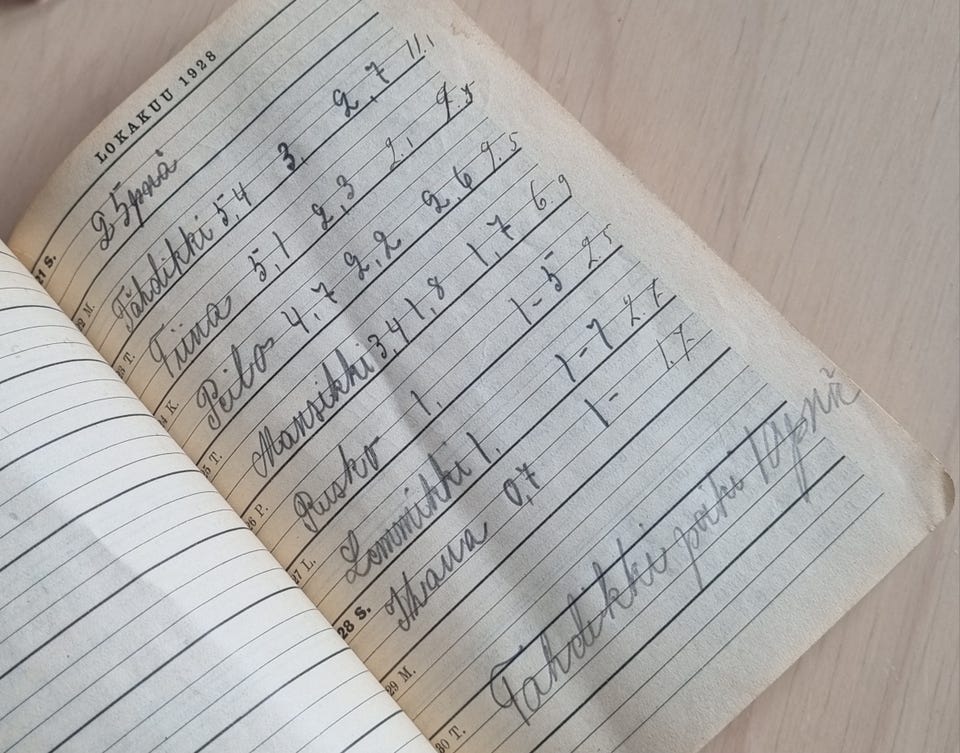 LOKAKUU 1928
21 S. 25 pnä
22 M. Tähdikki 5,4 3, 2,7 11.1
23 T. Tiina 5,1 2,3 2.1 9.5
24 K. 4,7 2,2 2,6 9.5
25 T. Mansikki 3,4 1,8 1,7 6.9
26 P. Rusko 1, 1-5 2.5
27 L. Lemmikki 1. 1-7 2.7
28 S. Ihana 0,7 1- 1.7
29 M.
30 T. Tahdikki poiki 10 pnä